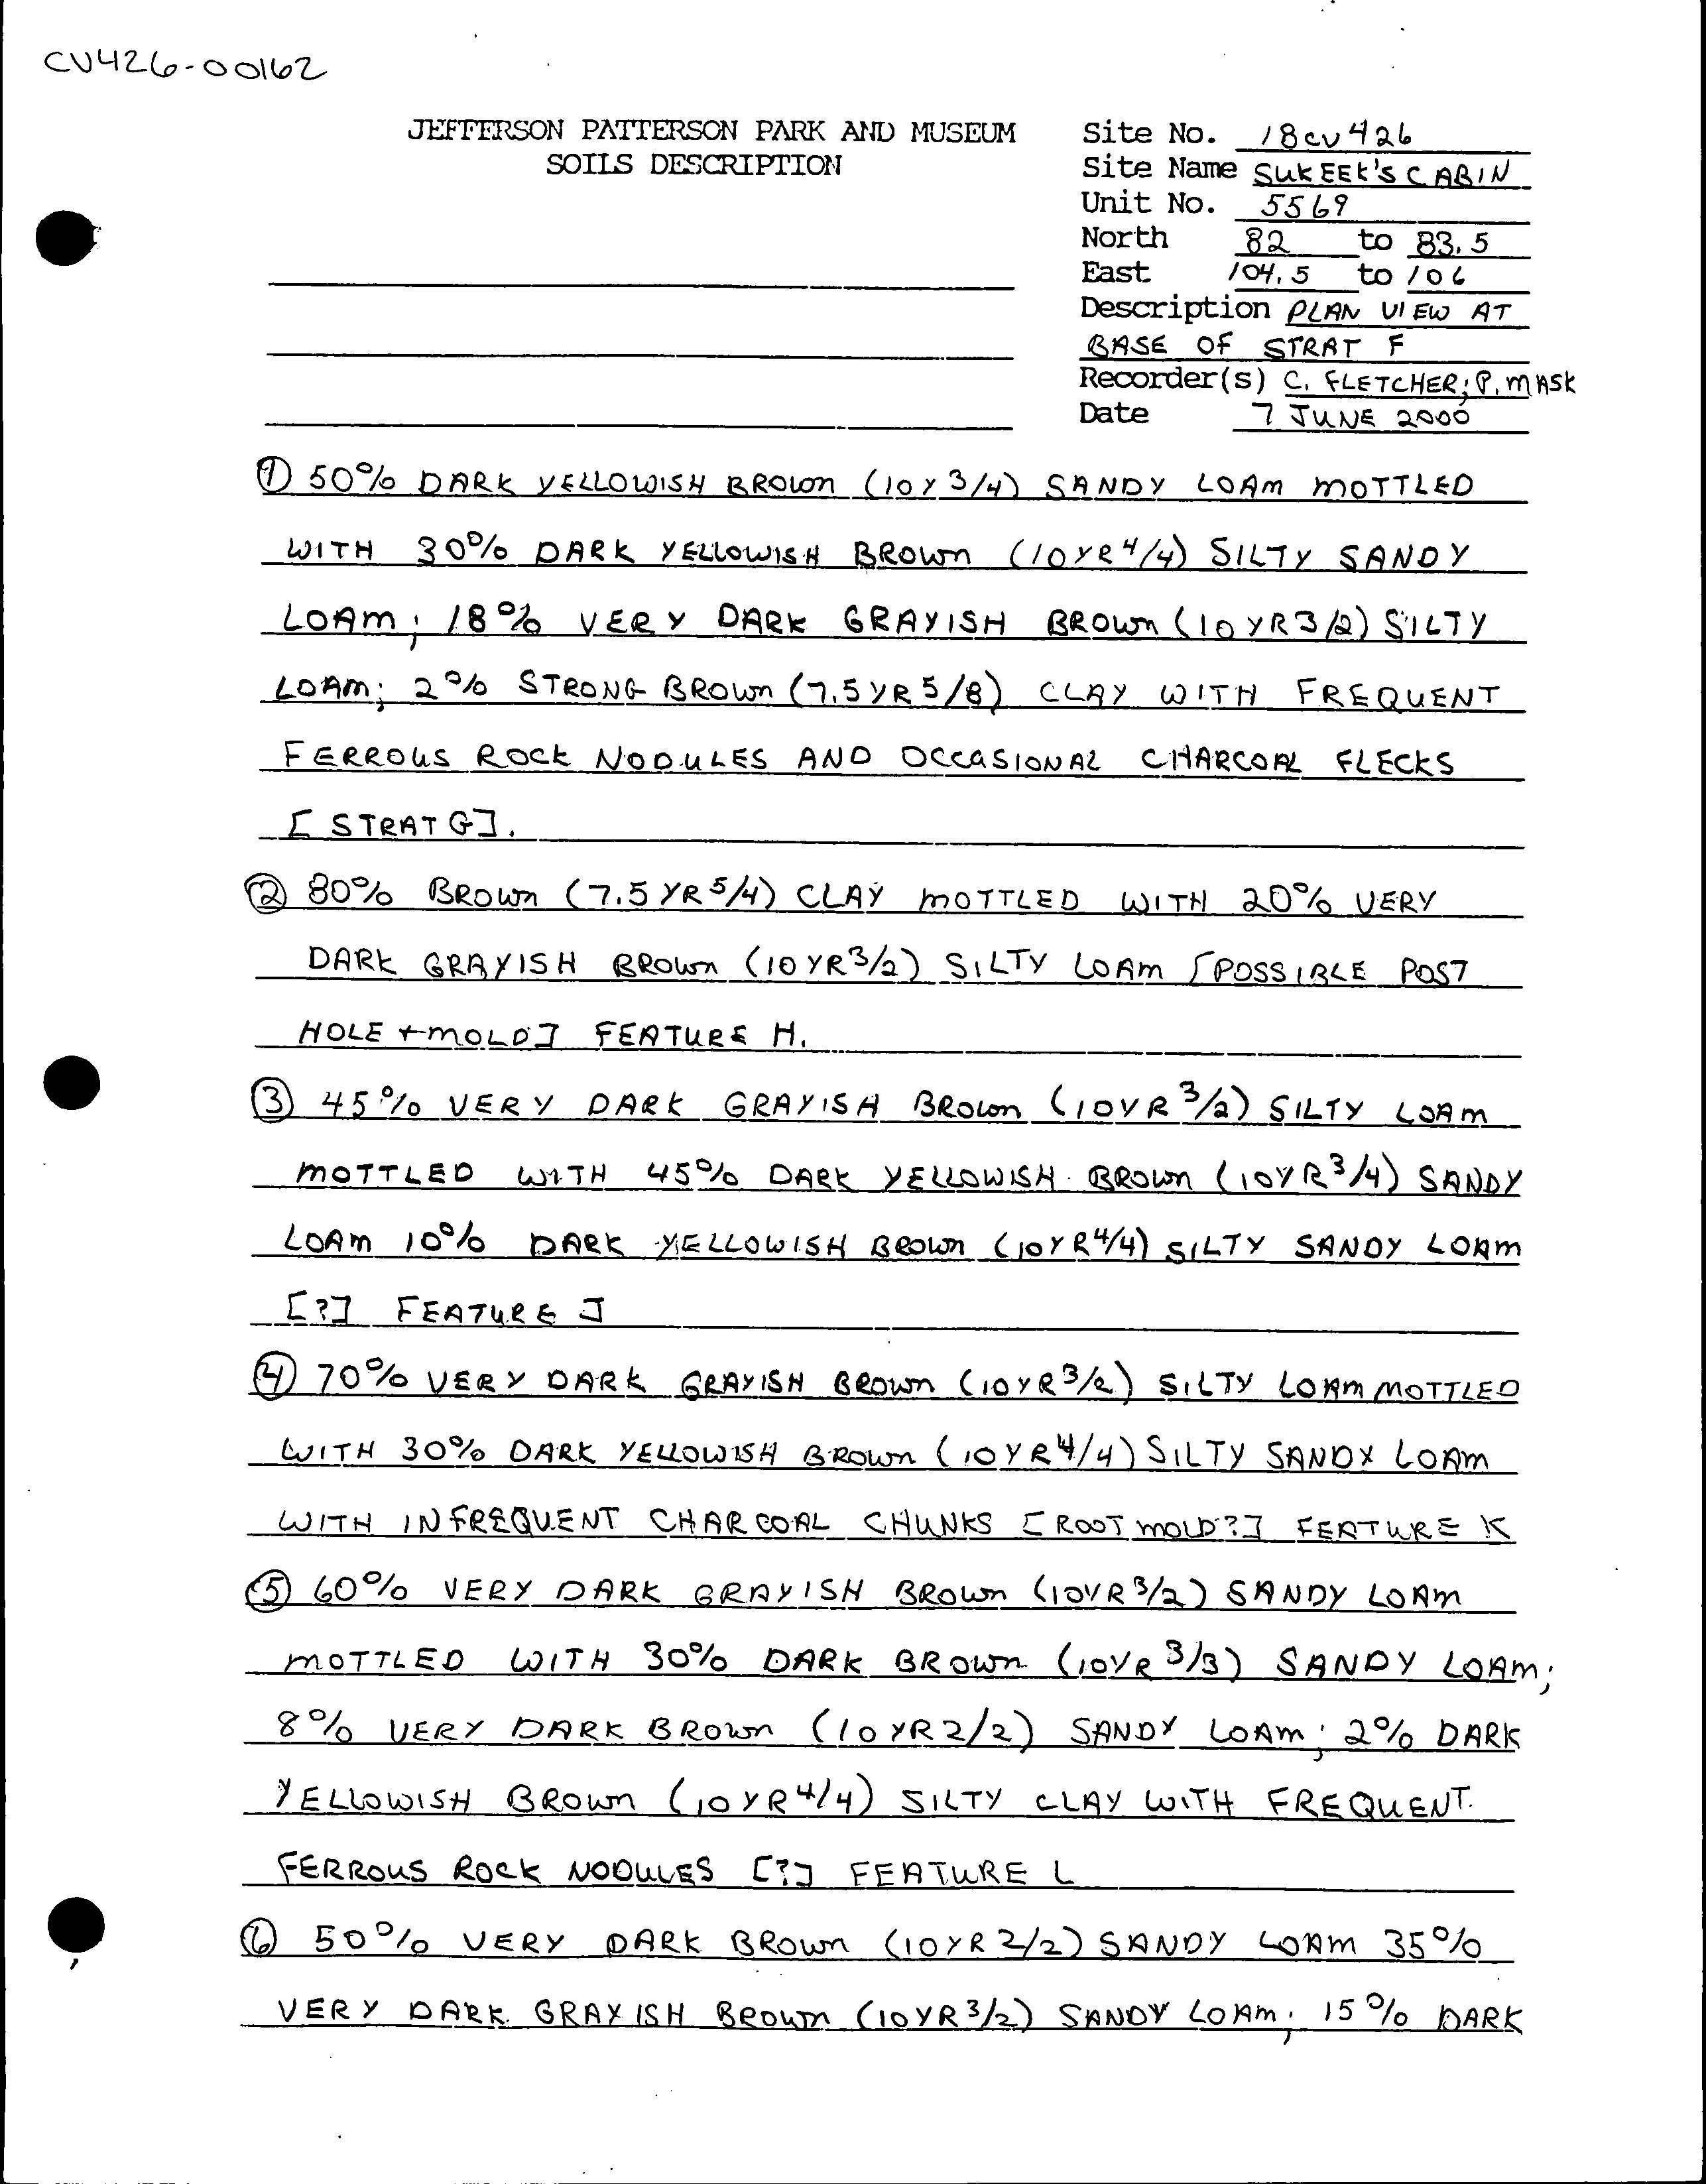 CV426-00162
JEFFERSON PATTERSON PARK AND MUSEUM
SOILS DESCRIPTION
Site No. 18CV426
Site Name SUKEEK'S CABIN
Unit No. 5569
North 82 to 83.5
East 104.5 to 106
Description PLAN VIEW AT
BASE OF STRAT F
Recorder(s) C. FLETCHER; P. MASK
Date 7 JUNE 2000
① 50% DARK YELLOWISH BROWN (10Y 3/4) SANDY LOAM MOTTLED
WITH 30% DARK YELLOWISH BROWN (10YR 4/4) SILTY SANDY
LOAM; 18% VERY DARK GRAYISH BROWN (10YR3/2) SILTY
LOAM; 2% STRONG BROWN (7.5YR 5/8) CLAY WITH FREQUENT
FERROUS ROCK NODULES AND OCCASIONAL CHARCOAL FLECKS
[STRAT G].
② 80% BROWN (7.5 YR 5/4) CLAY MOTTLED WITH 20% VERY
DARK GRAYISH BROWN (10YR 3/2) SILTY LOAM [POSSIBLE POST
HOLE + MOLD] FEATURE H.
③ 45% VERY DARK GRAYISH BROWN (10YR 3/2) SILTY LOAM
MOTTLED WITH 45% DARK YELLOWISH BROWN (10YR 3/4) SANDY
LOAM 10% DARK YELLOWISH BROWN (10YR 4/4) SILTY SANDY LOAM
[?] FEATURE J
④ 70% VERY DARK GRAYISH BROWN (10YR 3/2) SILTY LOAM MOTTLED
WITH 30% DARK YELLOWISH BROWN (10YR 4/4) SILTY SANDY LOAM
WITH INFREQUENT CHARCOAL CHUNKS [ROOT MOLD?] FEATURE K
⑤ 60% VERY DARK GRAYISH BROWN (10YR 3/2) SANDY LOAM
MOTTLED WITH 30% DARK BROWN (10YR 3/3) SANDY LOAM;
8% VERY DARK BROWN (10YR 2/2) SANDY LOAM; 2% DARK
YELLOWISH BROWN (10YR 4/4) SILTY CLAY WITH FREQUENT
FERROUS ROCK NODULES [?] FEATURE L
⑥ 50% VERY DARK BROWN (10YR 2/2) SANDY LOAM 35%
VERY DARK GRAYISH BROWN (10YR 3/2) SANDY LOAM; 15% DARK